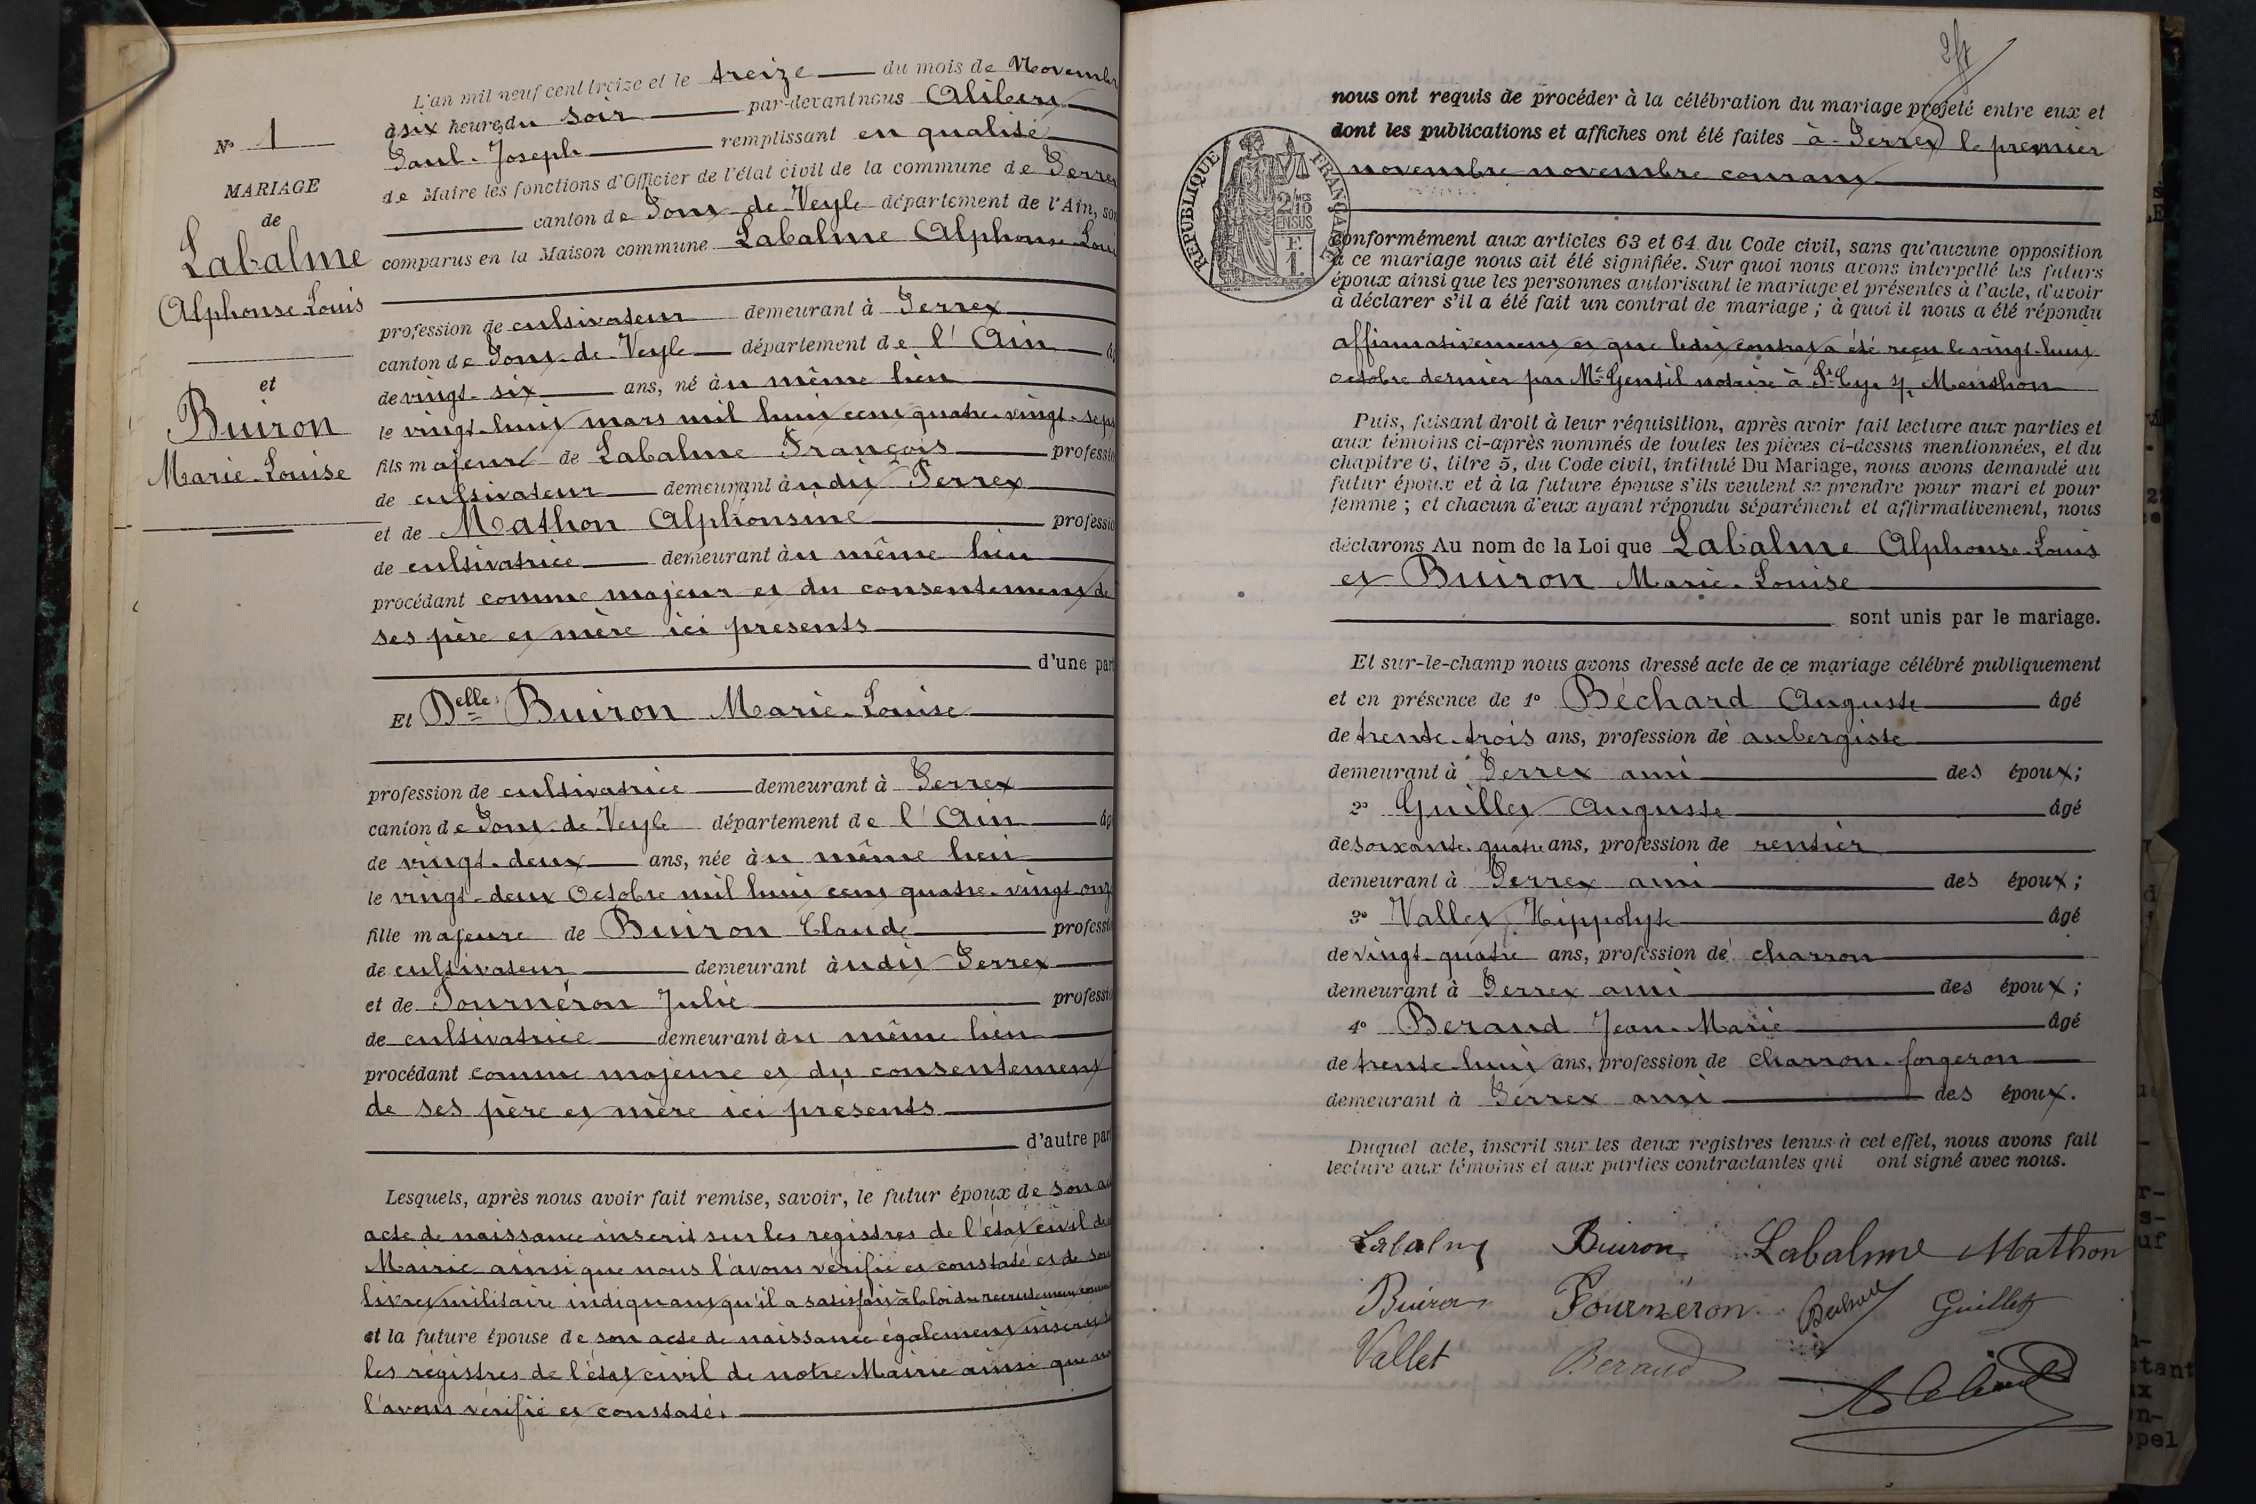 L'an mil neuf cent treize et le treize du mois de Novembre
à six heures du soir par-devant nous Alibert
Paul-Joseph remplissant en qualité
de Maire les fonctions d'Officier de l'état civil de la commune de Perrex
canton de Pont-de-Veyle département de l'Ain, sont
comparus en la Maison commune Labalme Alphonse Louis
N° 1
MARIAGE
de
Labalme
Alphonse-Louis
et
Buiron
Marie-Louise
profession de cultivateur demeurant à Perrex
canton de Pont-de-Veyle département de l'Ain
de vingt-six ans, né au même lieu
le vingt-huit mars mil huit cent quatre-vingt-sept
fils majeur de Labalme François profession
de cultivateur demeurant audit Perrex
et de Mathon Alphonsine profession
de cultivatrice demeurant au même lieu
procédant comme majeur et du consentement de
ses père et mère ici presents
d'une part
Et Delle Buiron Marie-Louise
profession de cultivatrice demeurant à Perrex
canton de Pont-de-Veyle département de l'Ain
de vingt-deux ans, née au même lieu
le vingt-deux Octobre mil huit cent quatre-vingt-onze
fille majeure de Buiron Claude profession
de cultivateur demeurant audit Perrex
et de Fournéron Julie profession
de cultivatrice demeurant au même lieu
procédant comme majeure et du consentement
de ses père et mère ici presents
d'autre part
Lesquels, après nous avoir fait remise, savoir, le futur époux de son
acte de naissance inscrit sur les registres de l'état civil de
Mairie ainsi que nous l'avons vérifié et constaté et de son
livret militaire indiquant qu'il a satisfait à la loi du recrutement
et la future épouse de son acte de naissance également inscrit
les régistres de l'état civil de notre Mairie ainsi que
l'avons vérifié et constaté.
nous ont requis de procéder à la célébration du mariage projeté entre eux et
dont les publications et affiches ont été faites à Perrex le premier
novembre novembre courant
RÉPUBLIQUE FRANÇAISE
2/10
EN SUS
conformément aux articles 63 et 64 du Code civil, sans qu'aucune opposition
à ce mariage nous ait été signifiée. Sur quoi nous avons interpellé les futurs
époux ainsi que les personnes autorisant le mariage et présentes à l'acte, d'avoir
à déclarer s'il a été fait un contrat de mariage ; à quoi il nous a été répondu
affirmativement et que ledit contrat a été reçu le vingt-huit
octobre dernier par Me Gentil notaire à St Cyr s/ Menthon
Puis, faisant droit à leur réquisition, après avoir fait lecture aux parties et
aux témoins ci-après nommés de toutes les pièces ci-dessus mentionnées, et du
chapitre 6, titre 5, du Code civil, intitulé Du Mariage, nous avons demandé au
futur époux et à la future épouse s'ils veulent se prendre pour mari et pour
femme ; et chacun d'eux ayant répondu séparément et affirmativement, nous
déclarons Au nom de la Loi que Labalme Alphonse-Louis
et Buiron Marie-Louise
sont unis par le mariage.
Et sur-le-champ nous avons dressé acte de ce mariage célébré publiquement
et en présence de 1° Béchard Auguste âgé
de trente-trois ans, profession de aubergiste
demeurant à Perrex ami des époux;
2° Guillet Auguste âgé
de soixante-quatre ans, profession de rentier
demeurant à Perrex ami des époux;
3° Vallet Hippolyte âgé
de vingt-quatre ans, profession de charron
demeurant à Perrex ami des époux;
4° Beraud Jean-Marie âgé
de trente-huit ans, profession de charron-forgeron
demeurant à Perrex ami des époux.
Duquel acte, inscrit sur les deux registres tenus à cet effet, nous avons fait
lecture aux témoins et aux parties contractantes qui ont signé avec nous.
Labalme Buiron Labalme Mathon
Buiron Fournéron Béchard Guillet
Vallet Beraud Alibert